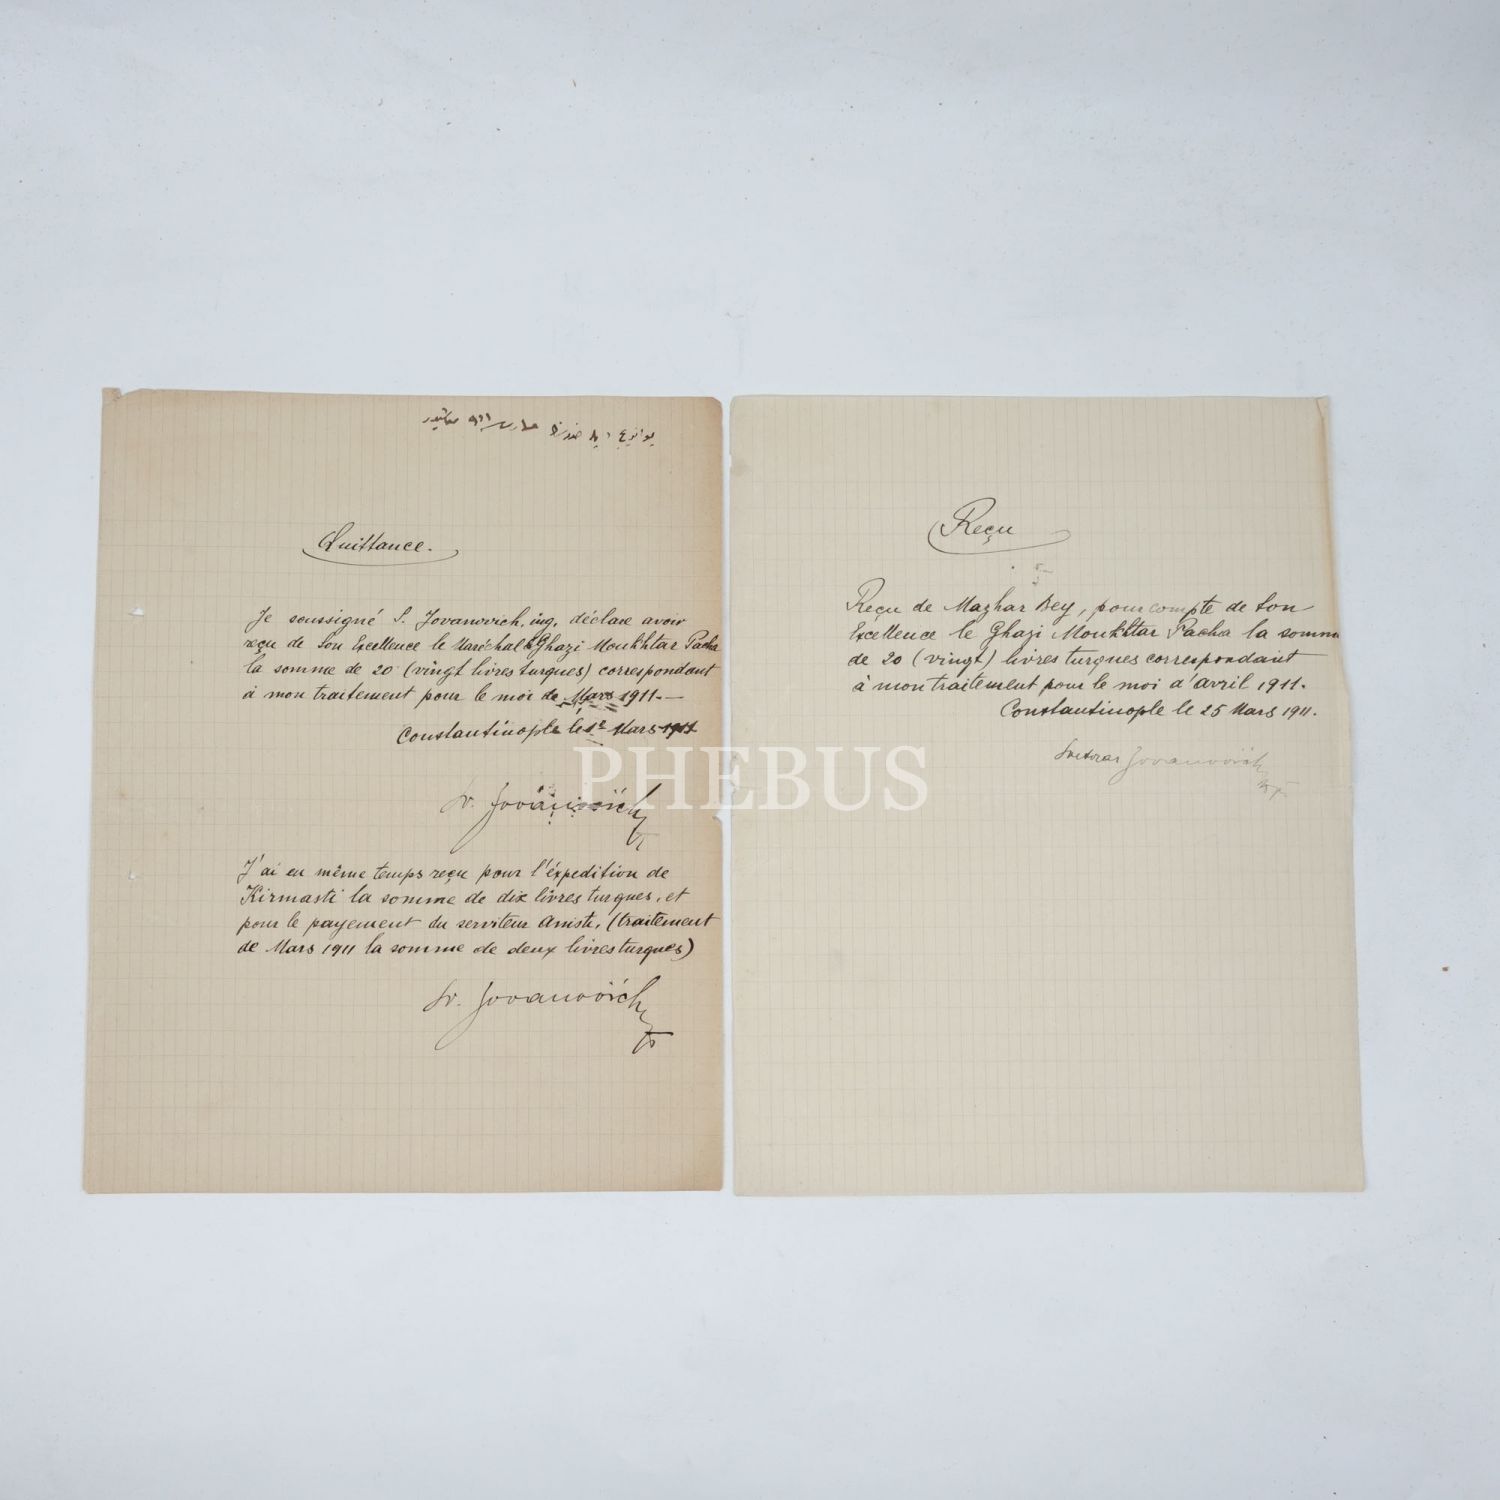 Quittance.
Je soussigné S. Jovanovich, ing. déclare avoir
reçu de Son Excellence le Maréchal Ghazi Moukhtar Pacha
la somme de 20 (vingt livres turques) correspondant
à mon traitement pour le moi de Mars 1911.—
Constantinople le 1r Mars 1911
Sv. Jovanovich
J'ai en même temps reçu pour l'éxpedition de
Kirmasti la somme de dix livres turques, et
pour le payement du serviteur Aniste, (traitement
de Mars 1911 la somme de deux livres turques)
Sv. Jovanovich
Reçu
Reçu de Mazhar Bey, pour compte de Son
Excellence le Ghazi Moukhtar Pacha la somme
de 20 (vingt) livres turques correspondant
à mon traitement pour le moi d'avril 1911.
Constantinople le 25 Mars 1911.
Svetozar Jovanovich
PHEBUS